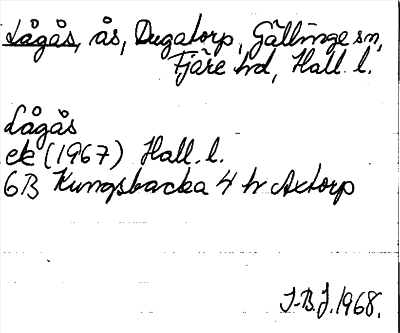 Lågås, ås, Dugatorp, Gällinge sn,
Fjäre hd, Hall. l.
Lågås
ek (1967) Hall. l.
6B Kungsbacka 4 h Axtorp
J-B.J. 1968.